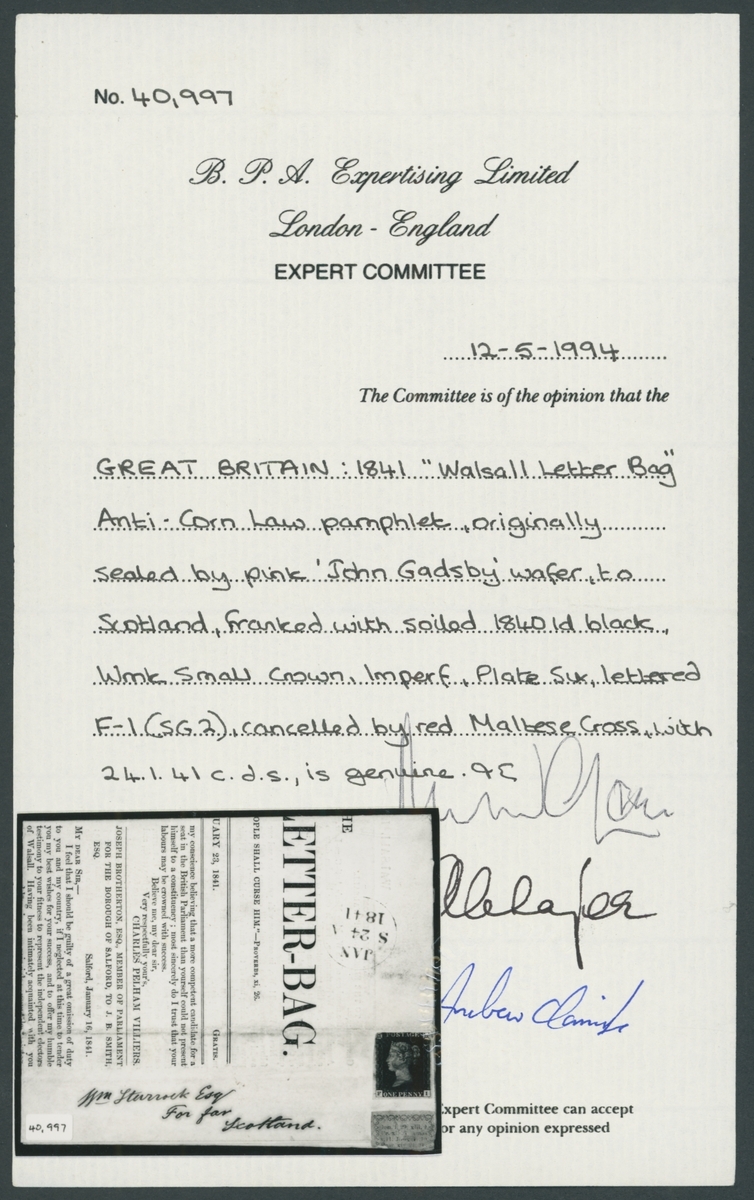 No. 40,997
B. P. A. Expertising Limited
London - England
EXPERT COMMITTEE
12-5-1994
The Committee is of the opinion that the
GREAT BRITAIN : 1841 "Walsall Letter Bag"
Anti-Corn Law pamphlet, originally
sealed by pink 'John Gadsby' wafer, to
Scotland, franked with soiled 1840 1d black,
Wmk Small Crown, Imperf, Plate Six, lettered
F-I (SG2), cancelled by red Maltese Cross, with
24.1.41 c.d.s., is genuine.
HE
ETTER-BAG.
OPLE SHALL CURSE HIM."—PROVERBS, xi, 26.
UARY 23, 1841.
GRATIS.
my conscience believing that a more competent candidate for a
seat in the British Parliament than yourself could not present
himself to a constituency; most sincerely do I trust that your
labours may be crowned with success.
Believe me, my dear sir,
Very respectfully your's,
CHARLES PELHAM VILLIERS.
JOSEPH BROTHERTON, ESQ., MEMBER OF PARLIAMENT
FOR THE BOROUGH OF SALFORD, TO J. B. SMITH,
ESQ.
Salford, January 16, 1841.
MY DEAR SIR,—
I feel that I should be guilty of a great omission of duty
to you and my country, if I neglected at this time to tender
you my best wishes for your success, and to offer my humble
testimony to your fitness to represent the independent electors
of Walsall. Having been intimately acquainted with you
JAN
S 24 A
1841
POSTAGE
ONE PENNY
Wm Sturrock Esq
For far
Scotland.
40,997
Expert Committee can accept
or any opinion expressed